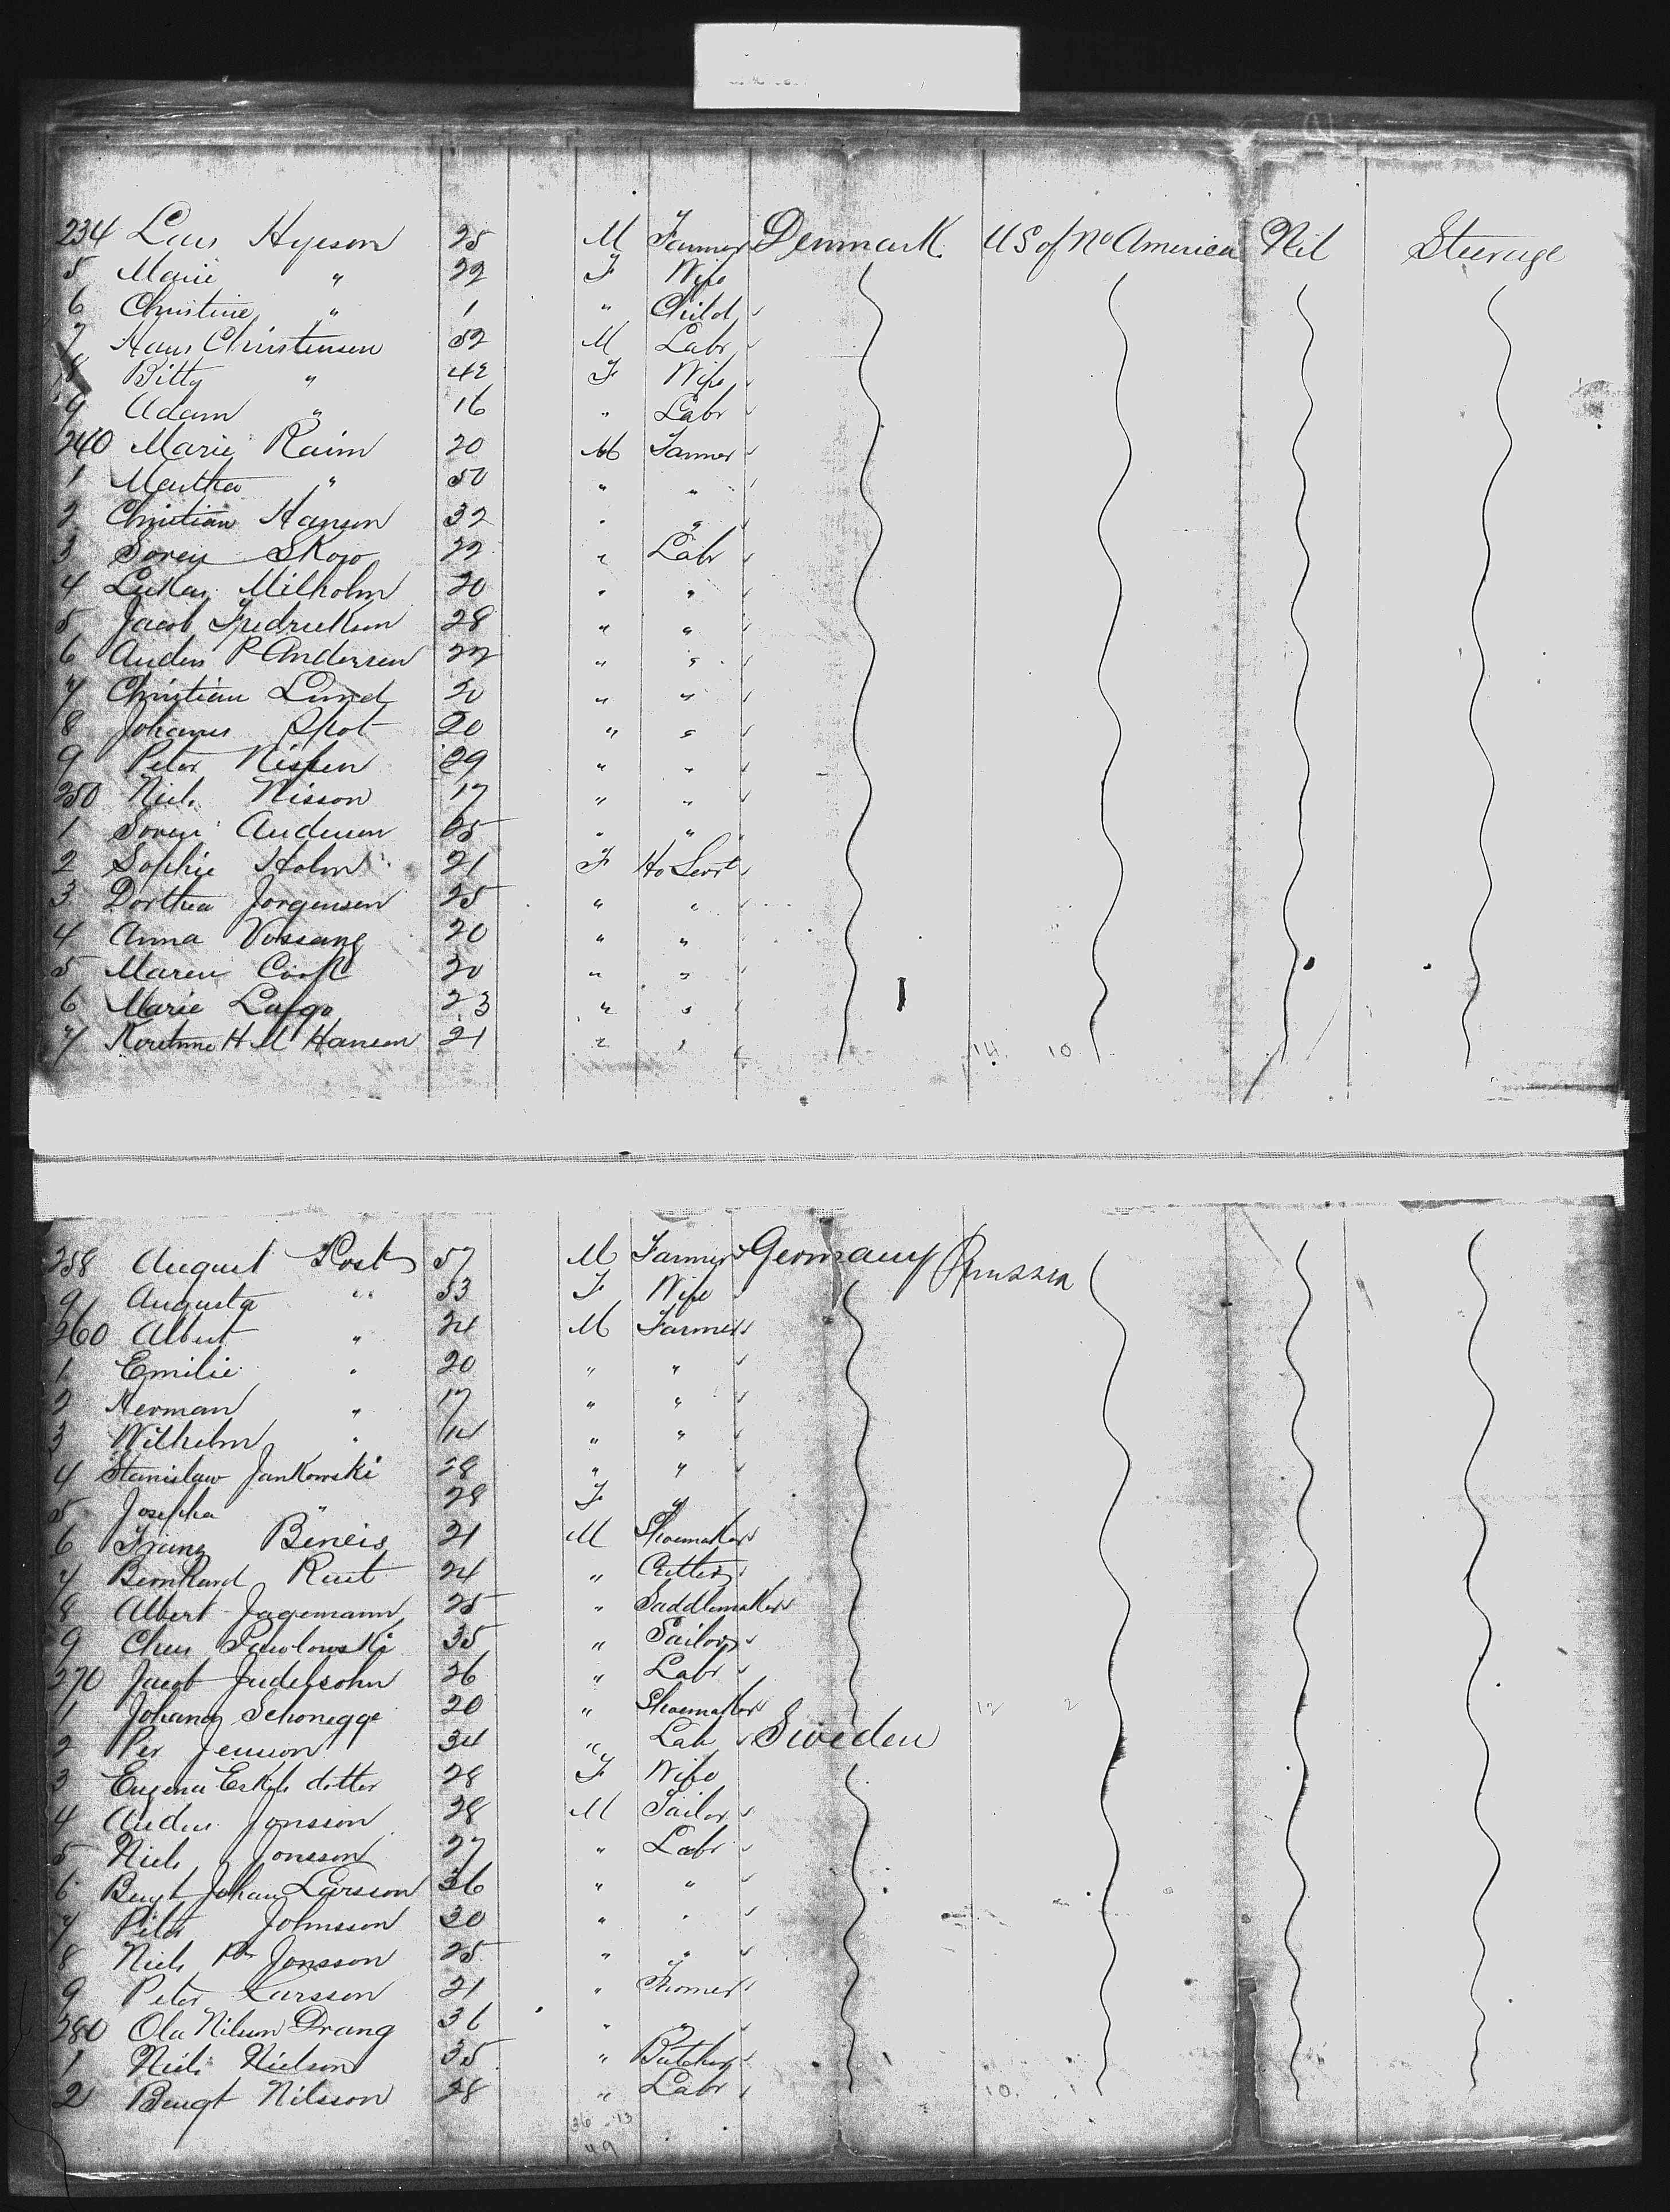 234 Lars Hyeson 25 M Farmer Denmark U S of No America Nil Steerage
5 Marie " 22 F Wife
6 Christine " 1 " Child
7 Hans Christensen 52 M Labr
8 Bitty " 42 F Wife
9 Adam " 16 " Labr
240 Marie Raim 20 M Farmer
1 Martha " 50 " "
2 Christian Hansen 32 " "
3 Soren Skow 22 " Labr
4 Lukas Milholm 20 " "
5 Jacob Fredricksen 28 " "
6 Anders P Andersen 22 " "
7 Christian Lund 20 " "
8 Johannes Skot 20 " "
9 Peter Nissen 29 " "
250 Niels Nisson 17 " "
1 Soren Andersen 65 " "
2 Sophie Holm 21 F Ho Servt
3 Dorthea Jorgensen 25 " "
4 Anna Vossang 20 " "
5 Maren 20 " "
6 Marie 23 " "
7 H M Hansen 21 " "
14 10
258 August Post 57 M Farmer Germany Prussia
9 Augusta " 53 F Wife
260 Albert " 24 M Farmer
1 Emilie " 20 " "
2 Herman " 17 " "
3 Wilhelm " 14 " "
4 Stanislaw Jankowski 28 " "
5 Josepha " 28 F "
6 Franz Beneis 21 M Shoemaker
7 Bernhard Rust 24 " Cutter
8 Albert Jagemann 25 " Saddlemaker
9 Chen Pawlowski 35 " Sailor
270 Jacob Judelsohn 26 " Labr
1 Johann Schonegge 20 " Shoemaker 12 2
2 Per Jenson 34 " Lab Sweden
3 Eugena Eskels dotter 28 F Wife
4 Anders Jonsson 28 M Tailor
5 Niels Jonsson 27 " Labr
6 Bengt Johan Larsson 36 " "
7 Peter Johnsson 30 " "
8 Niels Per Jonsson 25 " "
9 Peter Larsson 21 " Farmer
280 Ola Nilsson Drang 36 " "
1 Niels Nielson 35 " Butcher
2 Bengt Nilsson 28 " Labr 10 1
36 13
49